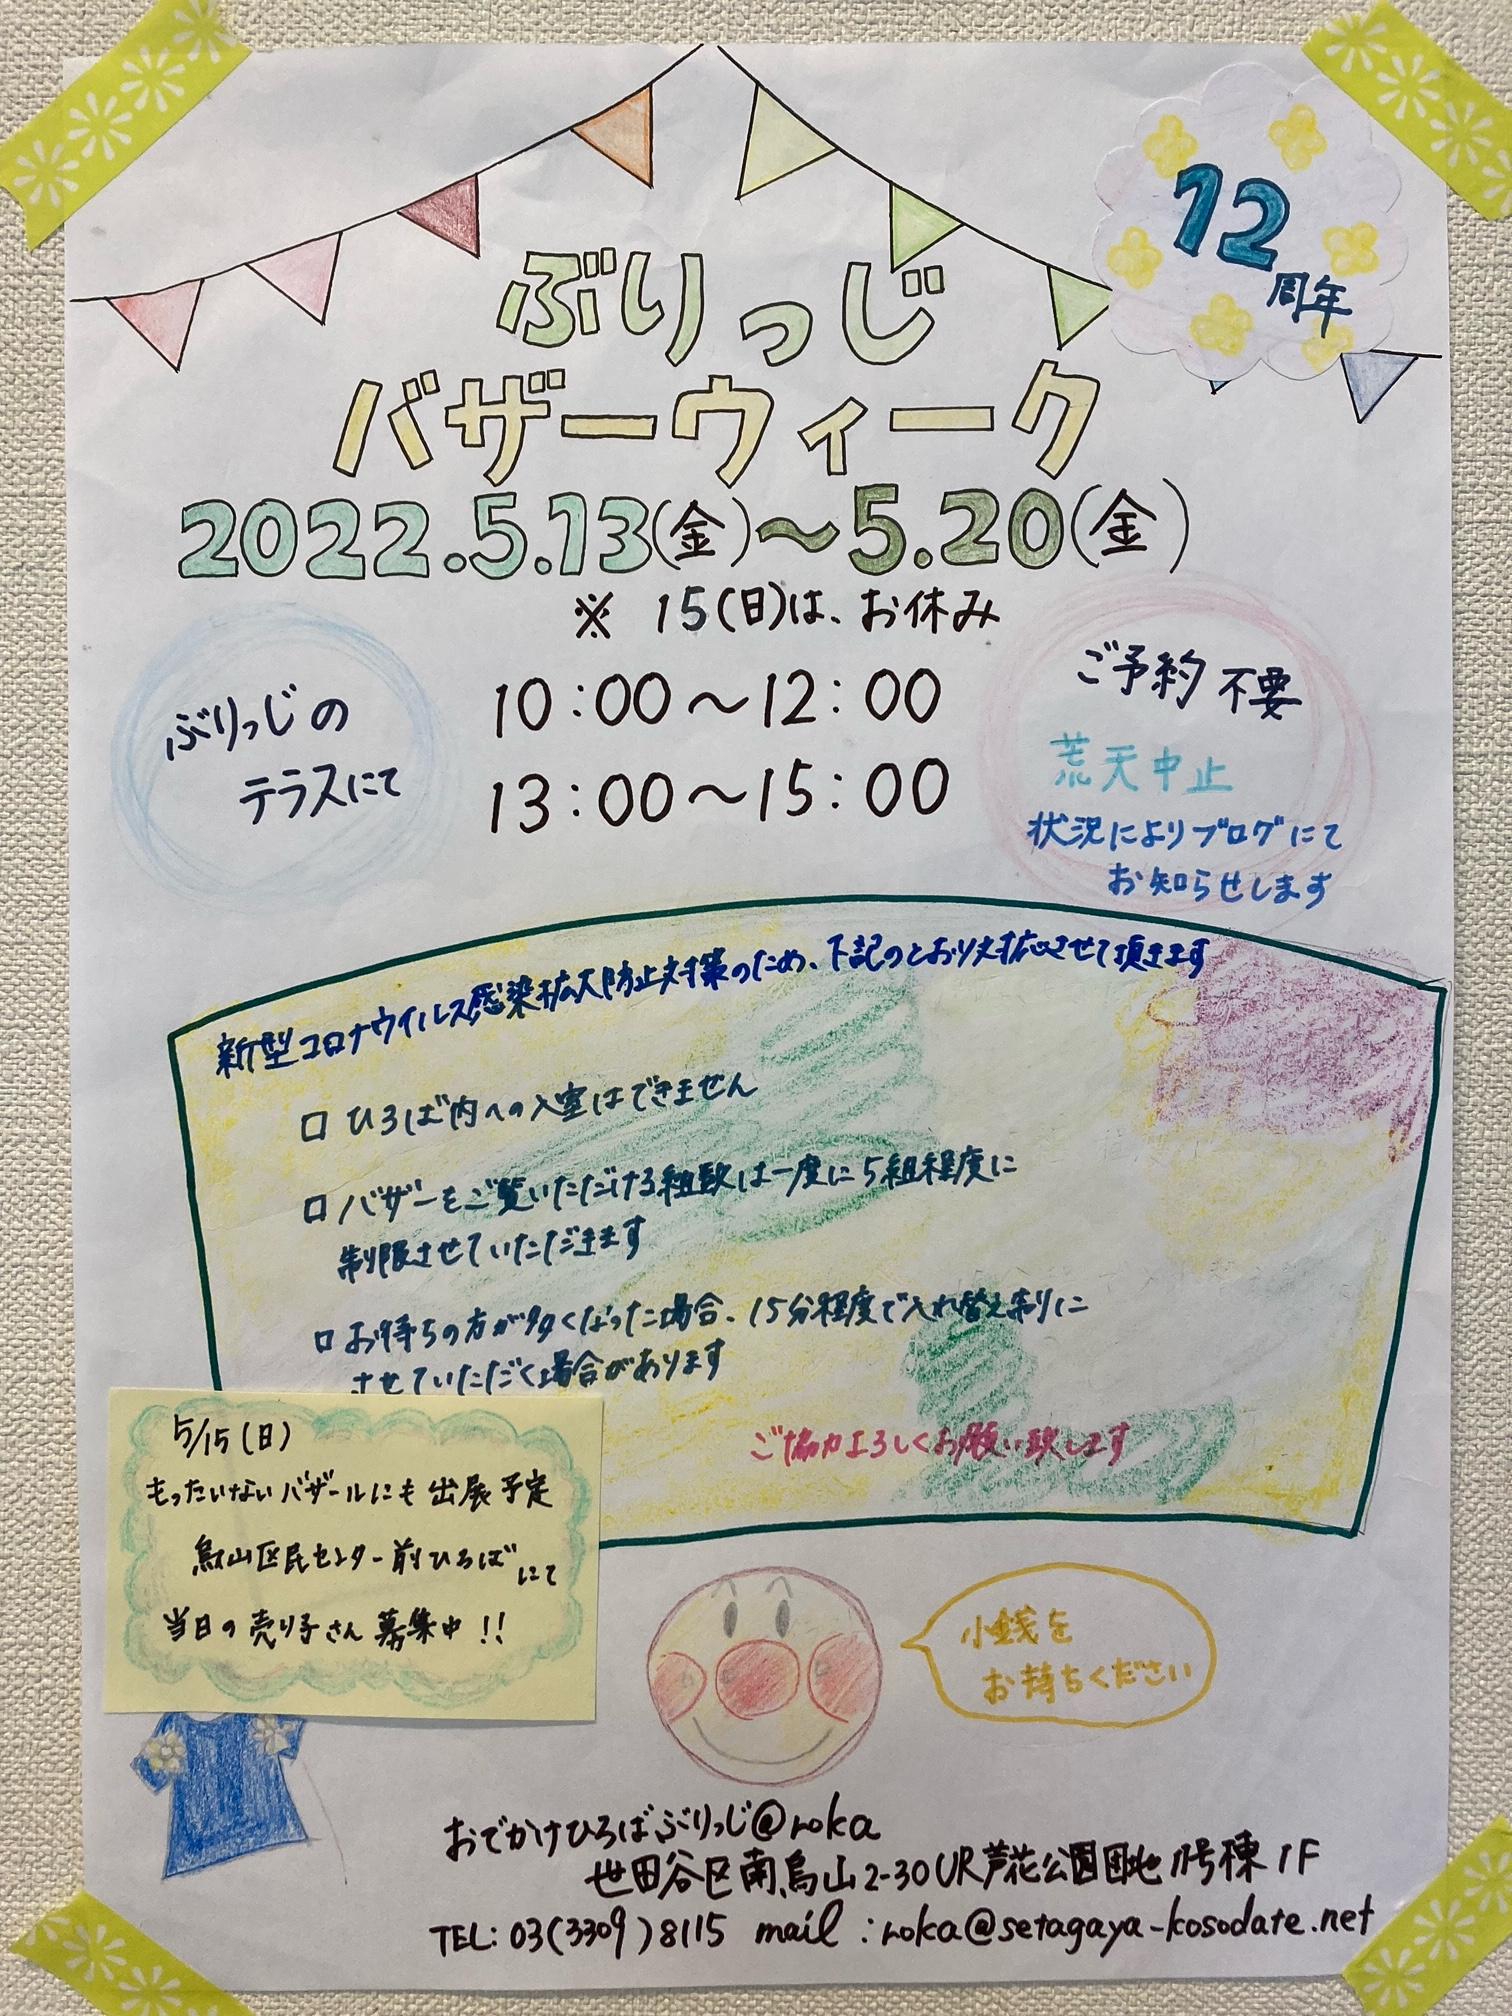 12
周年
ぶりっじ
バザーウィーク
2022.5.13(金)～5.20(金)
※ 15(日)は、お休み
ぶりっじの
テラスにて
10:00～12:00
13:00～15:00
ご予約 不要
荒天中止
状況によりブログにて
お知らせします
新型コロナウイルス感染拡大防止対策のため、下記のとおり対応させて頂きます
□ ひろば内への入室はできません
□ バザーをご覧いただける組数は一度に5組程度に
制限させていただきます
□ お待ちの方が多くなった場合、15分程度で入れ替え制に
させていただく場合があります
ご協力よろしくお願い致します
5/15(日)
もったいないバザールにも出展予定
烏山区民センター前ひろばにて
当日の売り子さん募集中!!
小銭を
お持ちください
おでかけひろばぶりっじ@roka
世田谷区南烏山2-30UR芦花公園団地11号棟1F
TEL:03(3309)8115 mail:roka@setagaya-kosodate.net